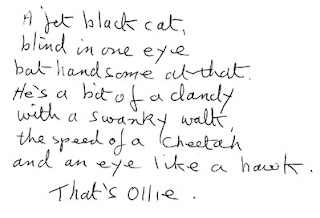 A jet black cat,
blind in one eye
but handsome at that.
He's a bit of a dandy
with a swanky walk,
the speed of a cheetah
and an eye like a hawk.
That's Ollie.